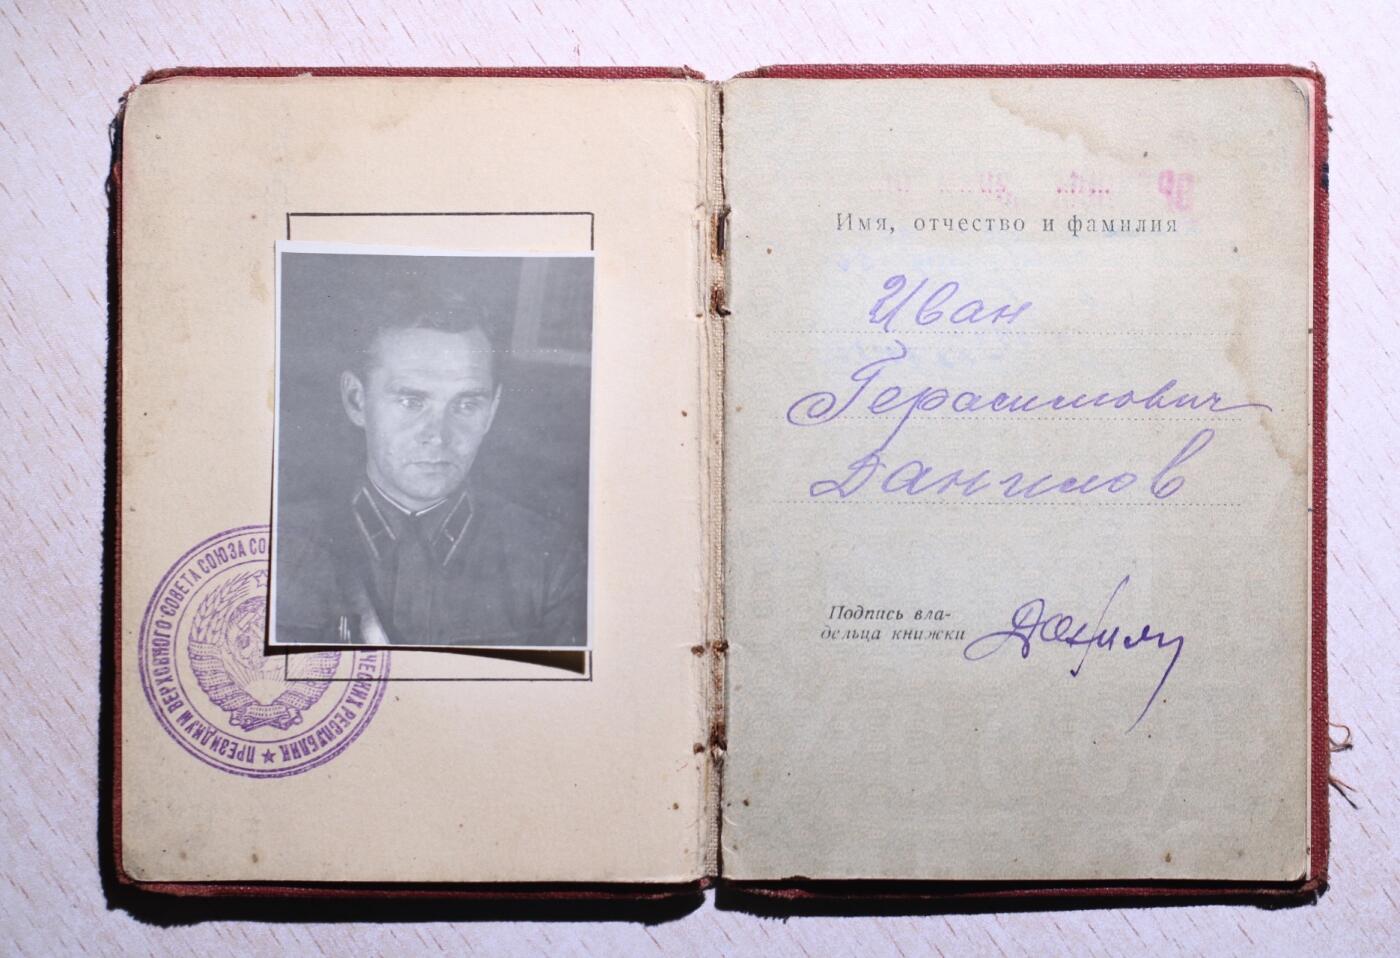 ПРЕЗИДИУМ ВЕРХОВНОГО СОВЕТА СОЮЗА СО ЧЕСКИХ РЕСПУБЛИК ★
Имя, отчество и фамилия
Иван
Герасимович
Данилов
Подпись вла-
дельца книжки